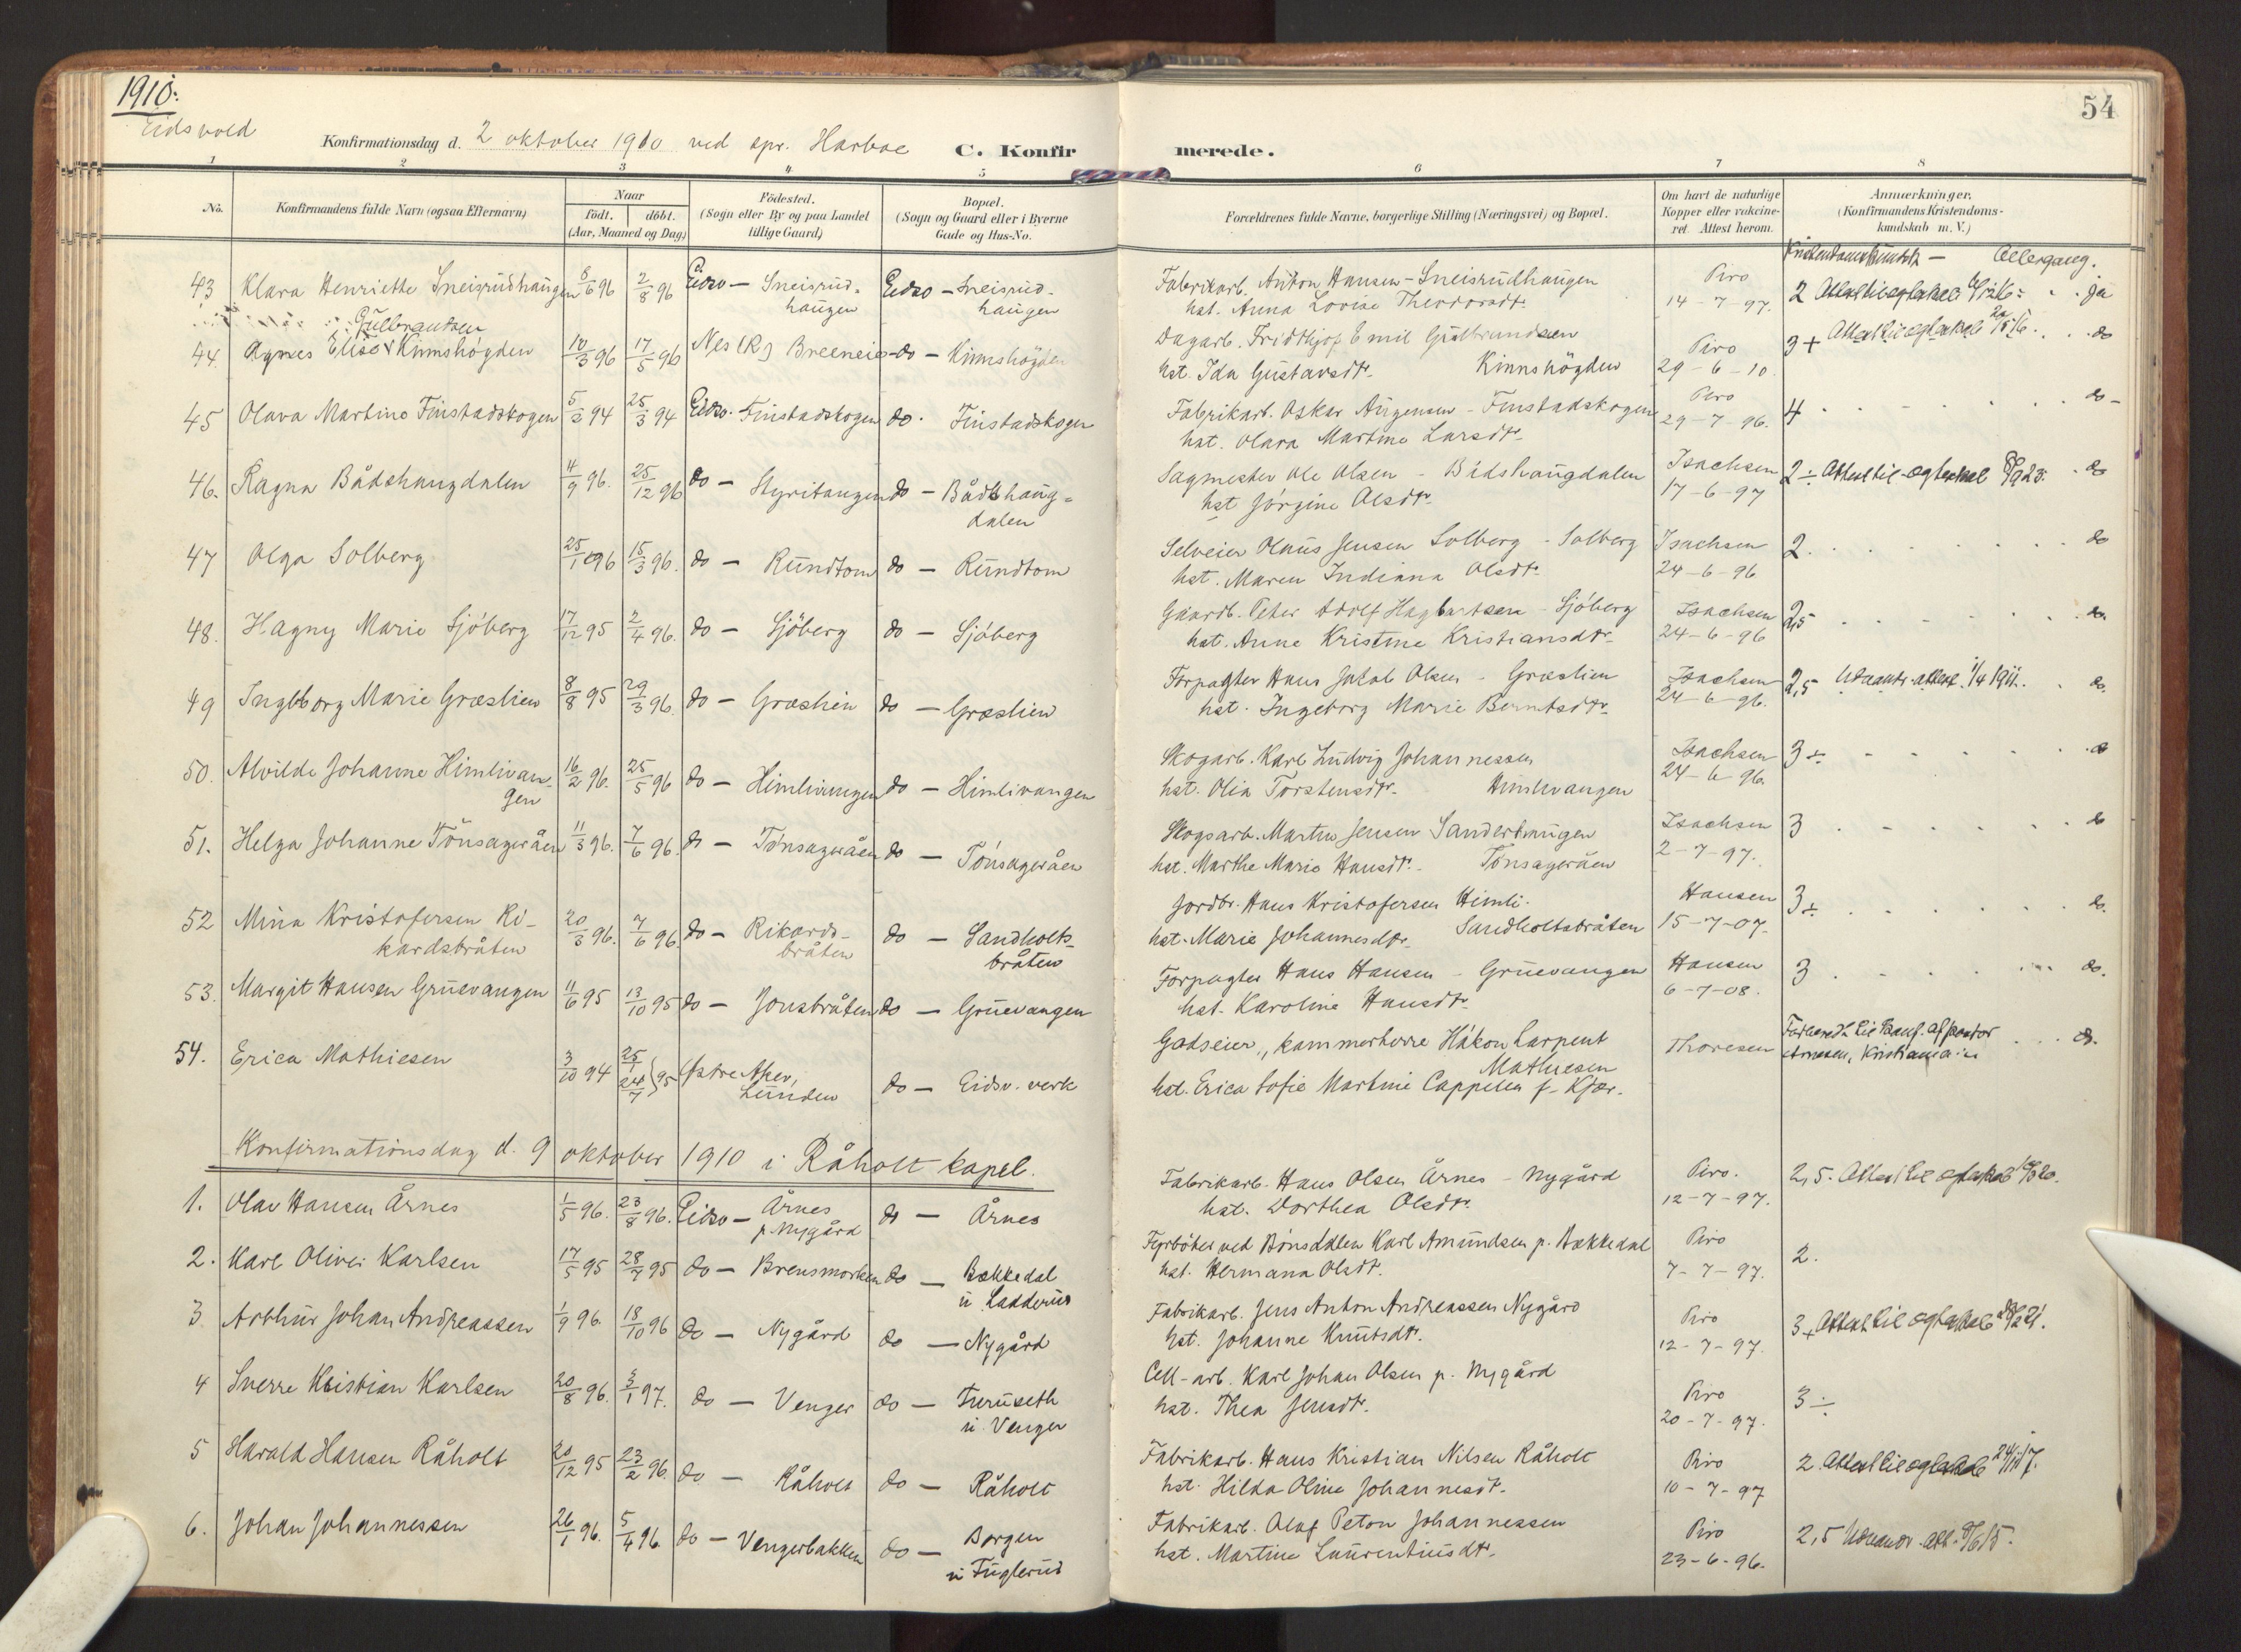 1910:
Eidsvold
54
Konfirmationsdag d. 2 oktober 1910 ved spr. Harboe
C. Konfirmerede.
1 2 3 4 5 6 7 8
No.
Konfirmandens fulde Navn (ogsaa Efternavn)
Naar
født. døbt.
(Aar, Maaned og Dag)
Fødested.
(Sogn eller By og paa Landet
tillige Gaard)
Bopæl.
(Sogn og Gaard eller i Byerne
Gade og Hus-No.
Forældrenes fulde Navne, borgerlige Stilling (Næringsvei) og Bopæl.
Om havt de naturlige
Kopper eller vakcine-
ret. Attest herom.
Anmærkninger.
(Konfirmandens Kristendoms-
kundskab m. V.)
Kristendomskundsk — Altergang.
43 Klara Henriette Sneisrudhaugen 8/6 96 2/8 96 Eidsv — Sneisrud-
haugen
Eidsv — Sneisrud-
haugen
Fabrikarb. Anton Hansen - Sneisrudhaugen
hst. Anna Lovise Theodorsdtr.
Piro
14-7-97.
2 Attest til egteskab ja
Gulbrantsen
44. Agnes Elise Kinnshøgden 10/3 96 17/5 96 Nes (R.) Breeneie do — Kinnshøgden
Dagarb. Fridthjof Emil Gulbrandsen
hst. Ida Gustavsdtr. Kinnshøgden
Piro
29-6-10.
3+ Attest til egteskab do
45 Olava Martine Finstadskogen 5/2 94 25/3 94 Eidsv. Finstadskogen do. Finstadskogen
Fabrikarb. Oskar Jørgensen - Finstadskogen
hst. Olava Martine Larsdtr.
Piro
29-7-96.
4 do
46. Ragna Bådshaugdalen 4/9 96. 25/12 96 do — Styritangen do — Bådshaug-
dalen
Sagmester Ole Olsen - Bådshaugdalen
hst Jørgine Olsdtr.
Isachsen
17-6-97
2÷ Attest til egteskab do
47 Olga Solberg 25/1 96 15/3 96. do — Rundtom do — Rundtom
Selveier Olaus Jensen Solberg - Solberg
hst. Maren Indiana Olsdtr.
Isachsen
24-6-96
2. do
48. Hagny Marie Sjøberg 17/12 95 2/4 96. do — Sjøberg do — Sjøberg
Gaardb. Peter Adolf Hagbartsen - Sjøberg
hst. Anne Kristine Kristiansdtr.
Isachsen
24-6-96
2,5 do.
49 Ingeborg Marie Græslien 8/8 95 29/3 96. do — Græslien do — Græslien
Forpagter Hans Jakob Olsen - Græslien
hst. Ingeborg Marie Berntsdtr.
Isachsen
24-6-96.
2,5 Udvandr. attest 1/4 1911. do.
50. Alvilde Johanne Himlivan-
gen
16/2 96. 25/5 96 do — Himlivangen do — Himlivangen
Skogarb. Karl Ludvig Johannessen
hst. Olia Torstensdtr. Himlivangen
Isachsen
24-6-96.
3÷ do
51. Helga Johanne Tønsageråen 11/3 96. 7/6 96. do — Tønsageråen do — Tønsageråen
Skogsarb. Martin Jensen Sanderhaugen
hst. Marthe Marie Hansdtr. - Tønsageråen
Isachsen
2-7-97.
3 do
52 Mina Kristofersen Ri-
kardsbråten
20/3 96. 7/6 96. do — Rikards-
bråten
do — Sandholts-
bråten
Jordbr. Hans Kristofersen Himli.
hst. Marie Johannesdtr. Sandholtsbråten
Hansen
15-7-07.
3÷ do.
53. Margit Hansen Gruevangen 11/6 95 13/10 95 do — Jonsbråten do — Gruevangen
Forpagter Hans Hansen - Gruevangen
hst. Karoline Hansdtr.
Hansen
6-7-08.
3 do.
54. Erica Mathiesen 3/10 94 25/1 24/7 } 95 Østre Aker,
Lunden
do — Eidsv. verk
Godseier, kammerherre Håkon Larpent
Mathiesen
hst. Erica Sofie Martine Cappelen f. Kjær.
Thoresen
Forberedt til konf. af pastor
Arnesen, Kristiania do.
Konfirmationsdag d. 9 oktober 1910 i Råholt kapel.
1. Olav Hansen Årnes 1/5 96. 23/8 96. Eidsv — Årnes
p. Nygård
do — Årnes
Fabrikarb. Hans Olsen Årnes - Nygård
hst. Dorthea Olsdtr.
Piro.
12-7-97.
2,5. Attest til egteskab
2. Karl Oliver Karlsen 17/5 95 28/7 95 do — Brensmorken do — Bækkedal
u. Ladderud
Fyrbøter ved Bønsdalen Karl Amundsen p. Bækkedal
hst. Hermana Olsdtr.
Piro
7-7-97.
2.
3 Arthur Johan Andreassen 1/9 96. 18/10 96 do — Nygård do — Nygård
Fabrikarb. Jens Anton Andreassen Nygård
hst. Johanne Knutsdtr.
Piro
12-7-97.
3+ Attest til egteskab
4 Sverre Kristian Karlsen 20/8 96. 3/1 97. do — Venger do — Furuseth
u. Venger
Cell-arb. Karl Johan Olsen p. Nygård
hst. Thea Jensdtr.
Piro
20-7-97.
3÷
5 Harald Hansen Råholt 20/12 95 23/2 96. do — Råholt do — Råholt
Fabrikarb. Hans Kristian Nilsen Råholt
hst. Hilda Oline Johannesdtr.
Piro
10-7-97
2. Attest til egteskab
6. Johan Johannessen 26/1 96. 5/4 96. do — Vengerbakken do — Borgen
u. Fuglerud
Fabrikarb. Olaf Peton Johannessen
hst. Martine Laurentiusdtr.
Piro
23-6-96.
2,5 Udvandr. att.